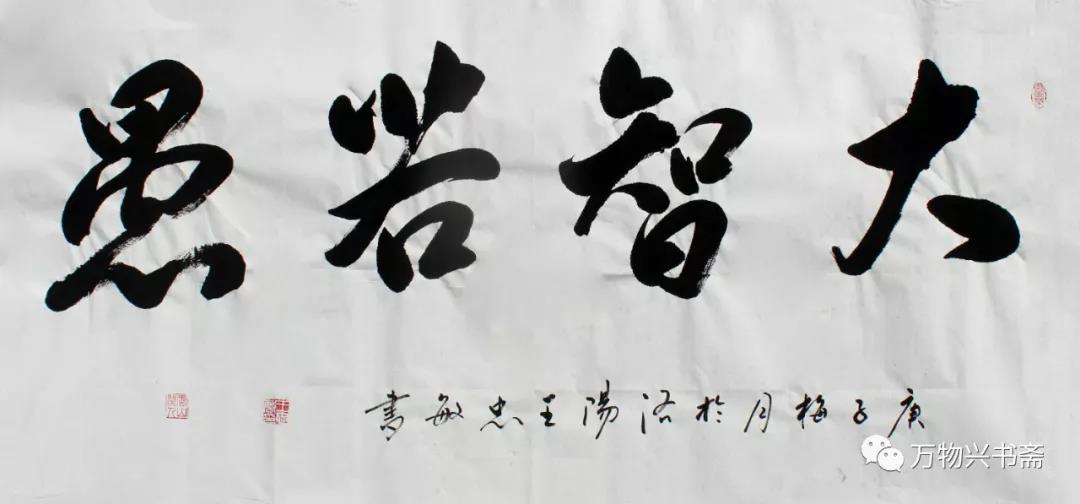 大智若愚
庚子梅月於洛陽王忠敏書
万物兴书斋